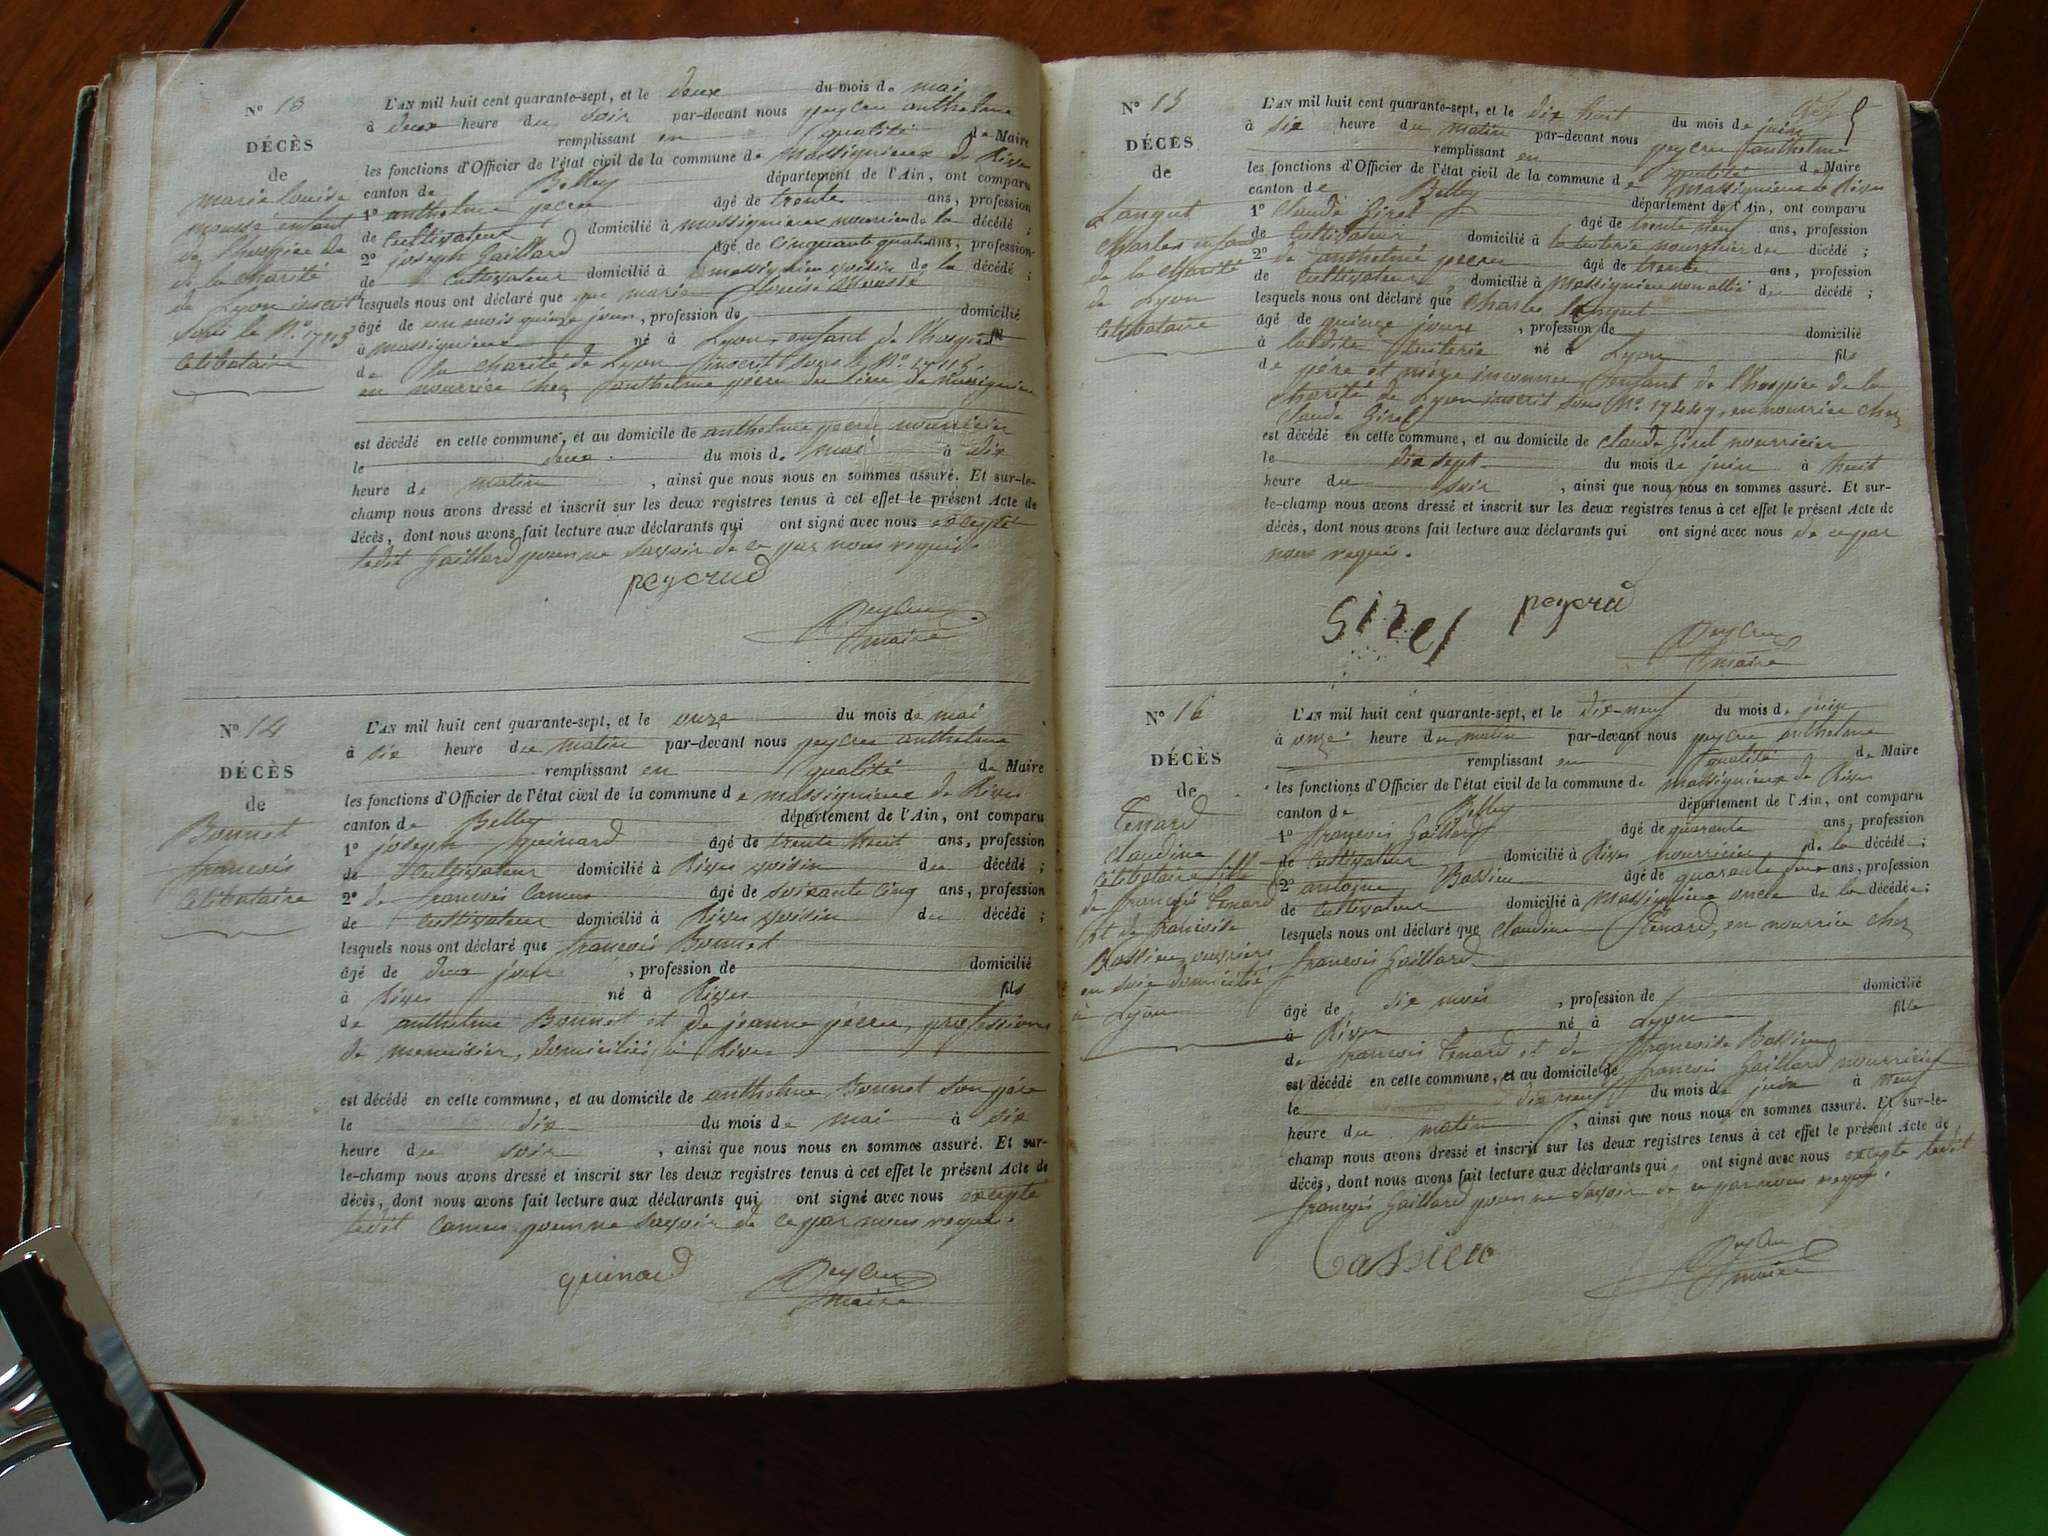 N° 13
DÉCÈS
de
marie Louise
mousse enfant
de l'hospice de
de la charité
de Lyon inscrit
sous le N°.
Célibataire
L'AN mil huit cent quarante-sept, et le deux du mois de mai
à deux heure du soir par-devant nous peycru anthelme
remplissant en qualité de Maire
les fonctions d'Officier de l'état civil de la commune de Massignieux de Rives
canton de Belley département de l'Ain, ont comparu
1° anthelme pecru âgé de trente ans, profession
de Cultivateur domicilié à Massignieux nourricier de la décédé ;
2° joseph Gaillard âgé de cinquante quatre ans, profession
de Cultivateur domicilié à Massignieu voisin de la décédé ;
lesquels nous ont déclaré que que marie Louise Mousse
âgé de un mois quinze jours, profession de domicilié
à Massignieux né à Lyon, enfant de l'hospice fil
de la charité de Lyon inscrit sous le N°.
en nourrice chez anthelme pécru du lieu de Massignieu
est décédé en cette commune, et au domicile de anthelme pecru nourricier
le deux du mois de mai à dix
heure de matin, ainsi que nous nous en sommes assuré. Et sur-le-
champ nous avons dressé et inscrit sur les deux registres tenus à cet effet le présent Acte de
décès, dont nous avons fait lecture aux déclarants qui ont signé avec nous excepté
ledit Gaillard pour ne savoir de ce par nous requis.
peycrud
Peycru
maire
N° 14
DÉCÈS
de
Bonnet
francois
Célibataire
L'AN mil huit cent quarante-sept, et le onze du mois de mai
à six heure du matin par-devant nous peycru anthelme
remplissant en qualité de Maire
les fonctions d'Officier de l'état civil de la commune de massignieux de Rives
canton de Belley département de l'Ain, ont comparu
1° joseph guinard âgé de trente huit ans, profession
de Cultivateur domicilié à Rives voisin du décédé ;
2° de francois Camus âgé de soixante cinq ans, profession
de Cultivateur domicilié à Rives voisin du décédé ;
lesquels nous ont déclaré que francois Bonnet
âgé de deux jours, profession de domicilié
à Rives né à Rives fils
de anthelme Bonnet et de jeanne pécru, profession
de menuisier, domiciliés à Rives
est décédé en cette commune, et au domicile de anthelme Bonnet son père
le dix du mois de mai à six
heure du soir, ainsi que nous nous en sommes assuré. Et sur-
le-champ nous avons dressé et inscrit sur les deux registres tenus à cet effet le présent Acte de
décès, dont nous avons fait lecture aux déclarants qui ont signé avec nous excepté
ledit Camus pour ne savoir de ce par nous requis.
guinard
Peycru
maire
N° 15
DÉCÈS
de
Langut
Charles enfant
de la Charité
de Lyon
Célibataire
L'AN mil huit cent quarante-sept, et le dix huit du mois de juin
à six heure du matin par-devant nous peycru anthelme
remplissant en qualité de Maire
les fonctions d'Officier de l'état civil de la commune de Massignieu de Rives
canton de Belley département de l'Ain, ont comparu
1° Claude Girel âgé de trente neuf ans, profession
de Cultivateur domicilié à la tuilerie nourricier du décédé ;
2° de anthelme pecru âgé de trente ans, profession
de Cultivateur, domicilié à Massignieu non allié du décédé ;
lesquels nous ont déclaré que Charles Langut
âgé de quinze jours, profession de domicilié
à ladite tuilerie né à Lyon fils
de père et mère inconnu, enfant de l'hospice de la
charité de Lyon inscrit sous N°. en nourrice chez
Claude Girel
est décédé en cette commune, et au domicile de Claude Girel nourricier
le dix sept du mois de juin à huit
heure du soir, ainsi que nous nous en sommes assuré. Et sur-
le-champ nous avons dressé et inscrit sur les deux registres tenus à cet effet le présent Acte de
décès, dont nous avons fait lecture aux déclarants qui ont signé avec nous de ce par
nous requis.
Girel peycrud
Peycru
maire
N° 16
DÉCÈS
de
Tenard
Claudine
Célibataire fille
de françois Tenard
et de francoise
Bassieu ouvriers
en soie domicilié
à Lyon
L'AN mil huit cent quarante-sept, et le dix-neuf du mois de juin
à onze heure du matin par-devant nous peycru anthelme
remplissant en qualité de Maire
les fonctions d'Officier de l'état civil de la commune de massignieux de Rives
canton de Belley département de l'Ain, ont comparu
1° françois Gaillard âgé de quarante ans, profession
de Cultivateur domicilié à Rives nourricier de la décédé ;
2° antoine Bassieu âgé de quarante deux ans, profession
de Cultivateur domicilié à Massignieu oncle de la décédée ;
lesquels nous ont déclaré que Claudine Tenard, en nourrice chez
francois Gaillard
âgé de dix mois, profession de domicilié
à Rives né à Lyon fille
de francois Tenard et de françoise Bassieu
est décédé en cette commune, et au domicile de francois Gaillard nourricier
le dix neuf du mois de juin à neuf
heure du matin, ainsi que nous nous en sommes assuré. Et sur-le-
champ nous avons dressé et inscrit sur les deux registres tenus à cet effet le présent Acte de
décès, dont nous avons fait lecture aux déclarants qui ont signé avec nous excepté ledit
françois Gaillard pour ne savoir de ce par nous requis.
Bassieu
Peycru
maire